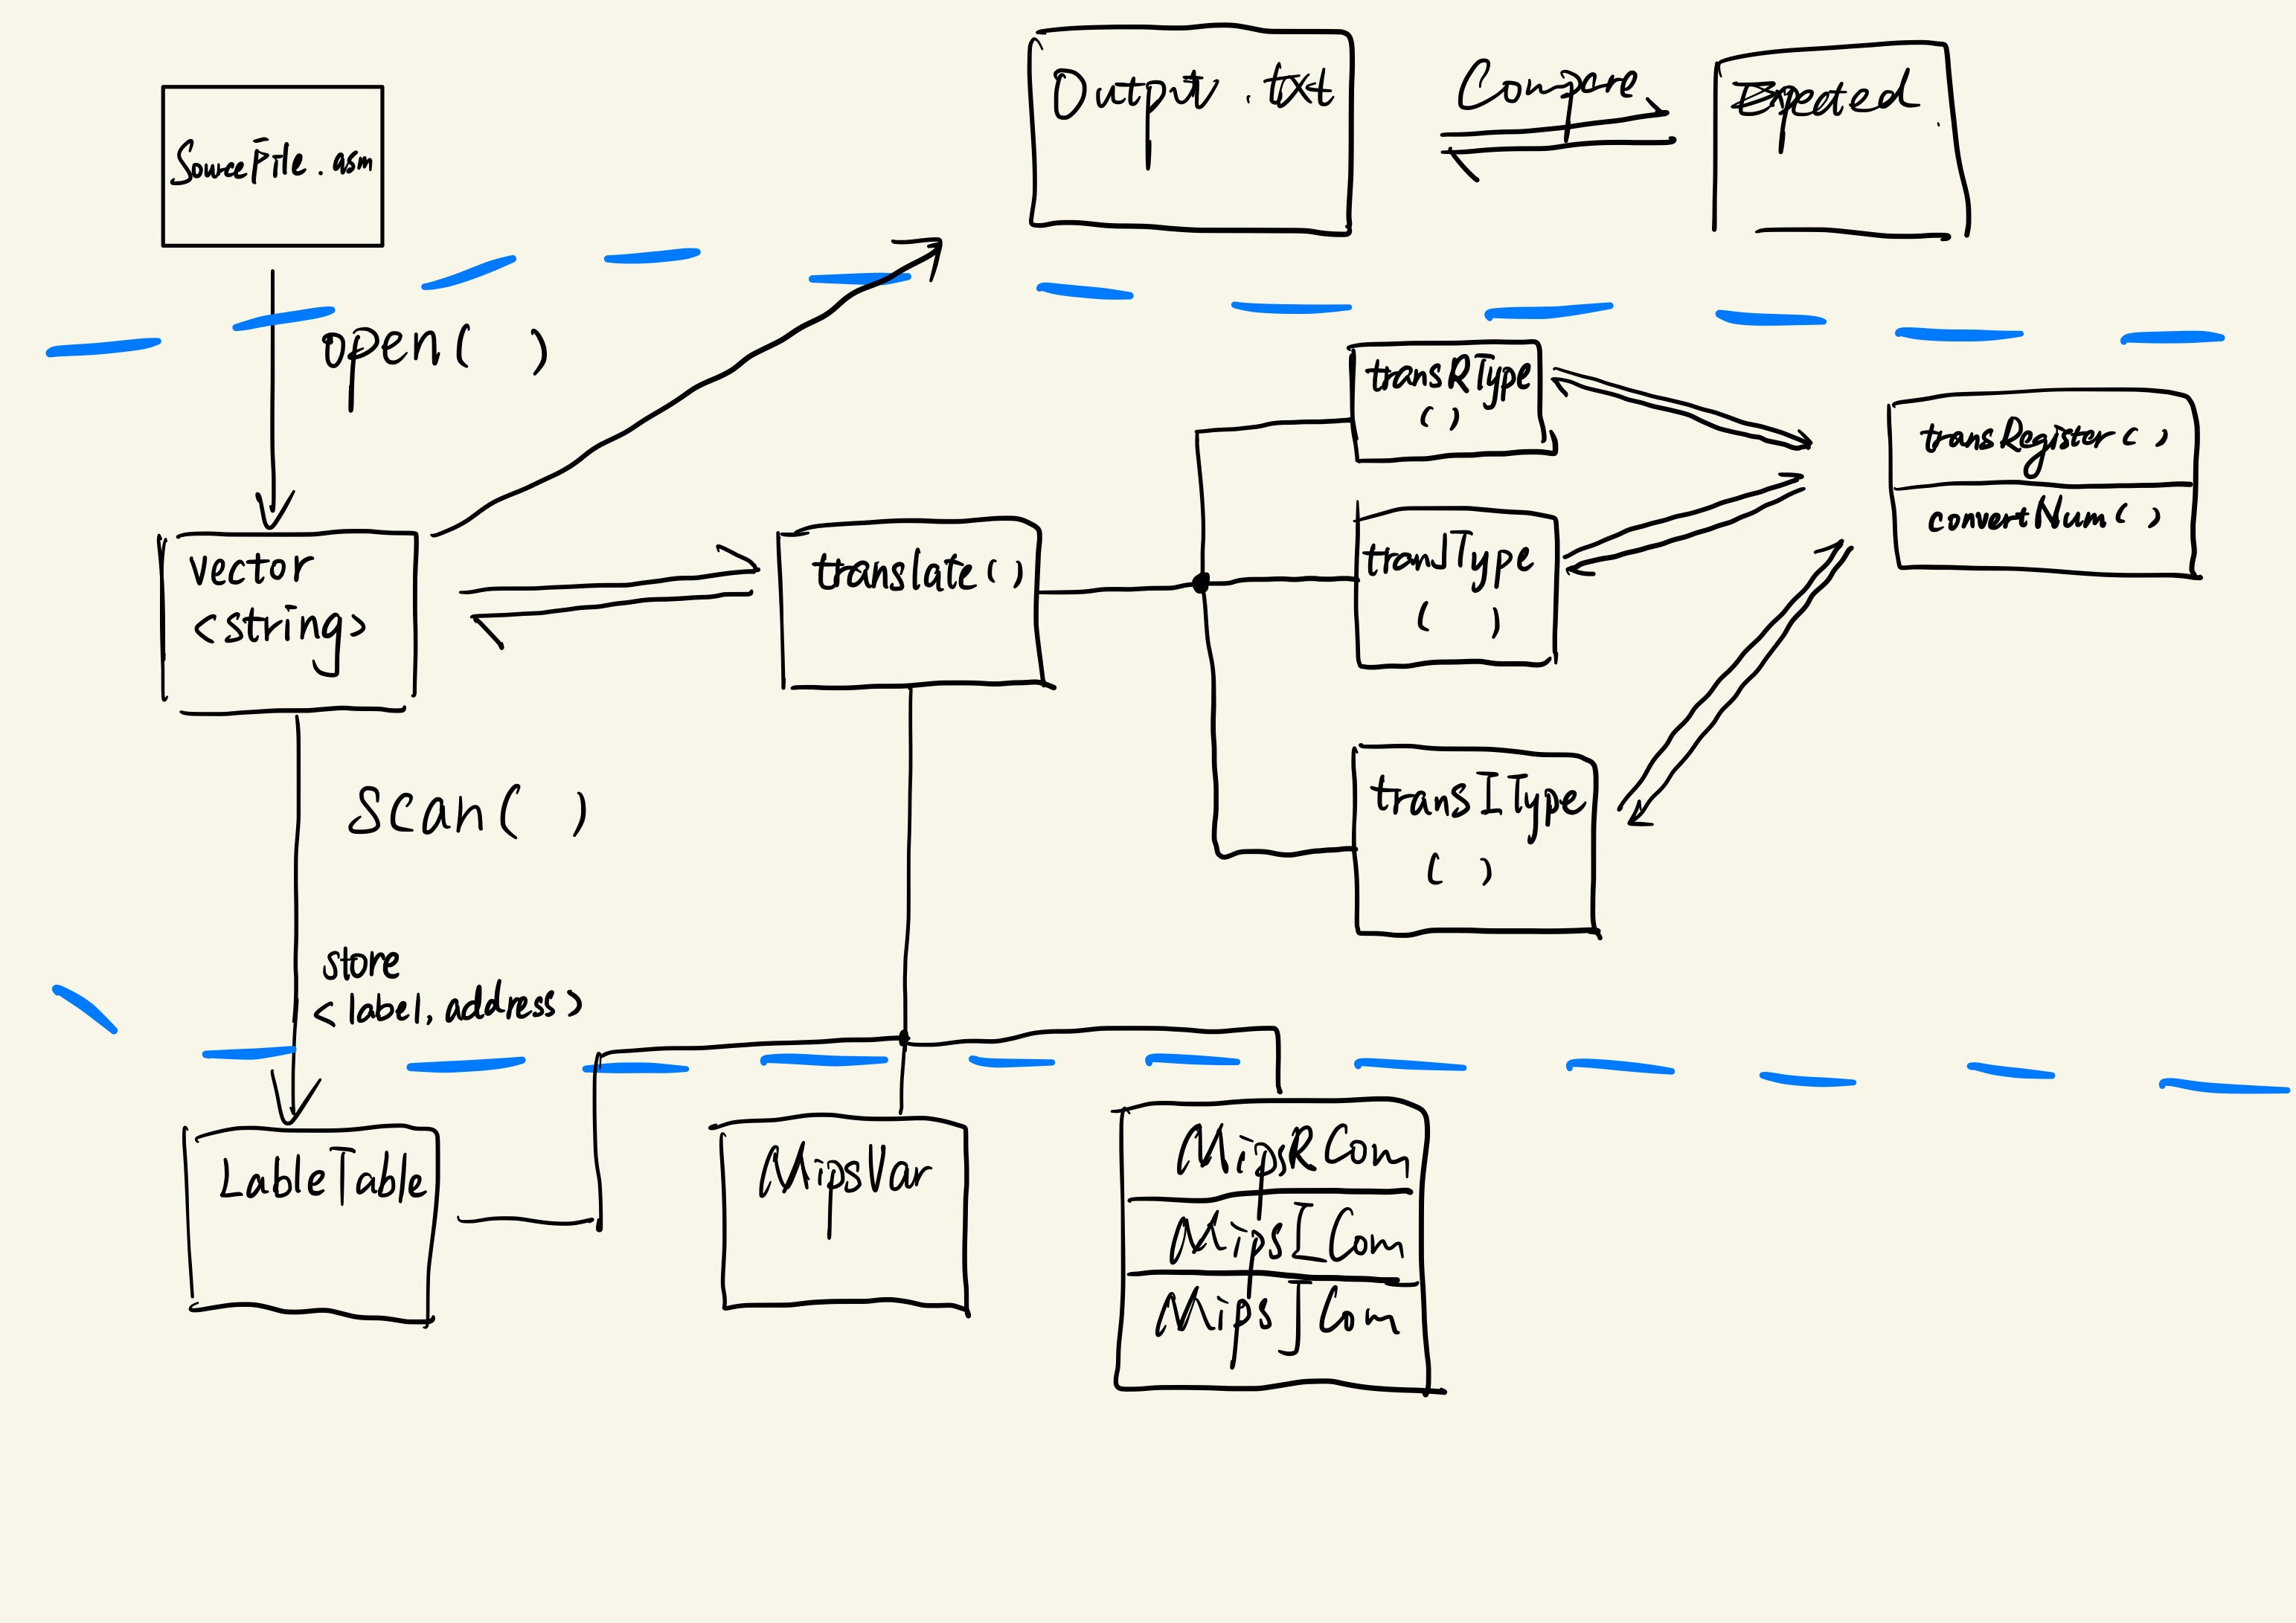 SourceFile.asm
Output.txt
Compare
Expected
open( )
vector
<string>
translate( )
transRType
( )
tranJType
( )
transIType
( )
transRegister( )
convertNum( )
scan( )
store
<label, address>
LableTable
MipsVar
MipsRCom
MipsICom
MipsJCom